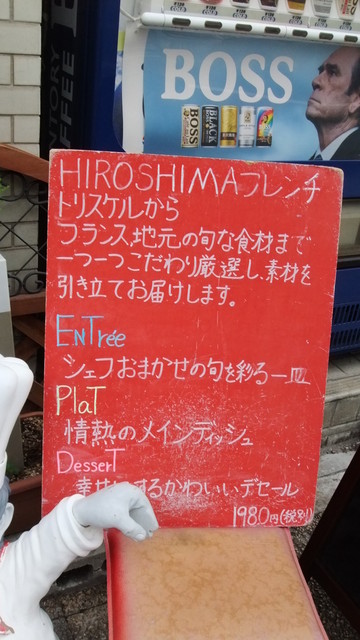 BOSS
BOSS
BLACK
BOSS
HIROSHIMAフレンチ
トリスケルから
フランス、地元の旬な食材まで
一つ一つこだわり厳選し、素材を
引き立てお届けします。
ENTrée
シェフおまかせの旬を彩る一皿
PlaT
情熱のメインディッシュ
DesserT
幸せにするかわいいデセール
1980円(税別)